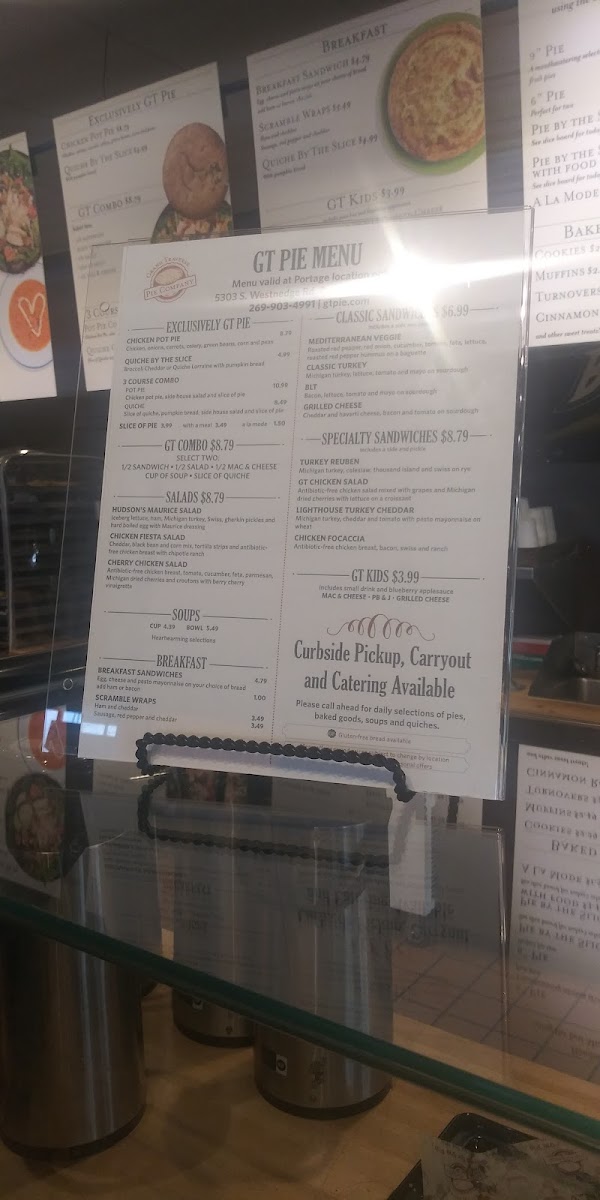 BREAKFAST
BREAKFAST SANDWICH $4.79
SCRAMBLE WRAPS $3.49
QUICHE BY THE SLICE $4.99
GT KIDS $3.99
EXCLUSIVELY GT PIE
CHICKEN POT PIE $8.79
QUICHE BY THE SLICE $4.99
GT COMBO $8.79
9" PIE
6" PIE
Perfect for two
PIE BY THE
PIE BY THE
WITH FOOD
A LA MODE
BAKE
COOKIES
MUFFINS $2.
TURNOVERS
CINNAMON
GRAND TRAVERSE
PIE COMPANY
GT PIE MENU
Menu valid at Portage location
5303 S. Westnedge
269-903-4991 | gtpie.com
EXCLUSIVELY GT PIE
CHICKEN POT PIE 8.79
Chicken, onions, carrots, celery, green beans, corn and peas
QUICHE BY THE SLICE 4.99
Broccoli Cheddar or Quiche Lorraine with pumpkin bread
3 COURSE COMBO
POT PIE 10.98
Chicken pot pie, side house salad and slice of pie
QUICHE 8.49
Slice of quiche, pumpkin bread, side house salad and slice of pie
SLICE OF PIE 3.99 with a meal 3.49 a la mode 1.50
GT COMBO $8.79
SELECT TWO:
1/2 SANDWICH • 1/2 SALAD • 1/2 MAC & CHEESE
CUP OF SOUP • SLICE OF QUICHE
SALADS $8.79
HUDSON'S MAURICE SALAD
Iceberg lettuce, ham, Michigan turkey, Swiss, gherkin pickles and
hard boiled egg with Maurice dressing
CHICKEN FIESTA SALAD
Cheddar, black bean and corn mix, tortilla strips and antibiotic-
free chicken breast with chipotle ranch
CHERRY CHICKEN SALAD
Antibiotic-free chicken breast, tomato, cucumber, feta, parmesan,
Michigan dried cherries and croutons with berry cherry
vinaigrette
SOUPS
CUP 4.39 BOWL 5.49
Heartwarming selections
BREAKFAST
BREAKFAST SANDWICHES 4.79
Egg, cheese and pesto mayonnaise on your choice of bread
add ham or bacon 1.00
SCRAMBLE WRAPS
Ham and cheddar 3.49
Sausage, red pepper and cheddar 3.49
CLASSIC SANDWICHES $6.99
MEDITERRANEAN VEGGIE
Roasted red pepper, red onion, cucumber, tomato, feta, lettuce,
roasted red pepper hummus on a baguette
CLASSIC TURKEY
Michigan turkey, lettuce, tomato and mayo on sourdough
BLT
Bacon, lettuce, tomato and mayo on sourdough
GRILLED CHEESE
Cheddar and havarti cheese, bacon and tomato on sourdough
SPECIALTY SANDWICHES $8.79
Includes a side and pickle
TURKEY REUBEN
Michigan turkey, coleslaw, thousand island and swiss on rye
GT CHICKEN SALAD
Antibiotic-free chicken salad mixed with grapes and Michigan
dried cherries with lettuce on a croissant
LIGHTHOUSE TURKEY CHEDDAR
Michigan turkey, cheddar and tomato with pesto mayonnaise on
wheat
CHICKEN FOCACCIA
Antibiotic-free chicken breast, bacon, swiss and ranch
GT KIDS $3.99
Includes small drink and blueberry applesauce
MAC & CHEESE • PB & J • GRILLED CHEESE
Curbside Pickup, Carryout
and Catering Available
Please call ahead for daily selections of pies,
baked goods, soups and quiches.
Gluten-free bread available
to change by location